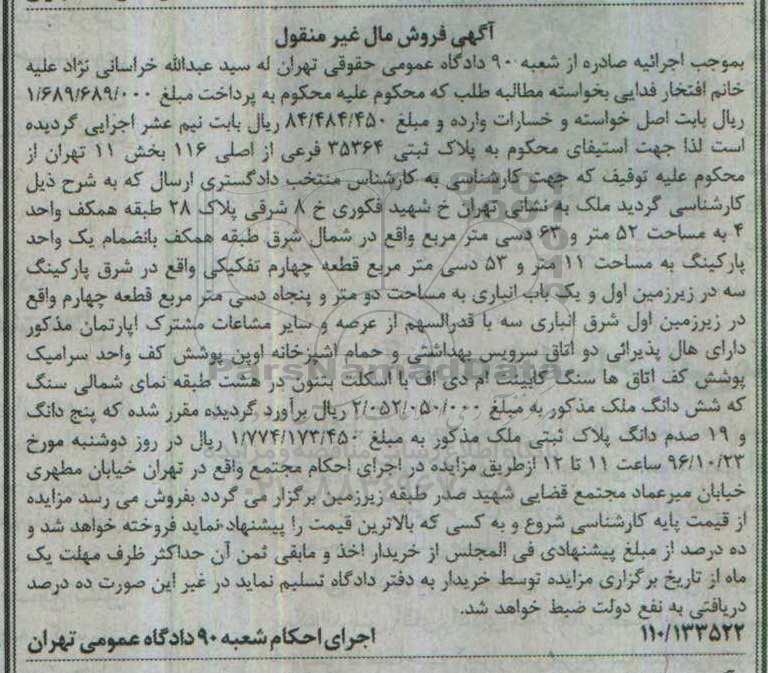 آگهی فروش مال غیر منقول
بموجب اجرائیه صادره از شعبه ۹۰ دادگاه عمومی حقوقی تهران له سید عبدالله خراسانی نژاد علیه
خانم افتخار فدایی بخواسته مطالبه طلب که محکوم علیه محکوم به پرداخت مبلغ ۱/۶۸۹/۶۸۹/۰۰۰
ریال بابت اصل خواسته و خسارات وارده و مبلغ ۸۴/۴۸۴/۴۵۰ ریال بابت نیم عشر اجرایی گردیده
است لذا جهت استیفای محکوم به پلاک ثبتی ۳۵۳۶۴ فرعی از اصلی ۱۱۶ بخش ۱۱ تهران از
محکوم علیه توقیف که جهت کارشناسی به کارشناس منتخب دادگستری ارسال که به شرح ذیل
کارشناسی گردید ملک به نشانی تهران خ شهید فکوری خ ۸ شرقی پلاک ۲۸ طبقه همکف واحد
۴ به مساحت ۵۲ متر و ۶۳ دسی متر مربع واقع در شمال شرق طبقه همکف بانضمام یک واحد
پارکینگ به مساحت ۱۱ متر و ۵۳ دسی متر مربع قطعه چهارم تفکیکی واقع در شرق پارکینگ
سه در زیرزمین اول و یک باب انباری به مساحت دو متر و پنجاه دسی متر مربع قطعه چهارم واقع
در زیرزمین اول شرق انباری سه با قدرالسهم از عرصه و سایر مشاعات مشترک اپارتمان مذکور
دارای هال پذیرائی دو اتاق سرویس بهداشتی و حمام اشپزخانه اوپن پوشش کف واحد سرامیک
پوشش کف اتاق ها سنگ کابینت ام دی اف با اسکلت بتنون در هشت طبقه نمای شمالی سنگ
که شش دانگ ملک مذکور به مبلغ ۲/۰۵۲/۰۵۰/۰۰۰ ریال برآورد گردیده مقرر شده که پنج دانگ
و ۱۹ صدم دانگ پلاک ثبتی ملک مذکور به مبلغ ۱/۷۷۴/۱۷۳/۴۵۰ ریال در روز دوشنبه مورخ
۹۶/۱۰/۲۳ ساعت ۱۱ تا ۱۲ ازطریق مزایده در اجرای احکام مجتمع واقع در تهران خیابان مطهری
خیابان میرعماد مجتمع قضایی شهید صدر طبقه زیرزمین برگزار می گردد بفروش می رسد مزایده
از قیمت پایه کارشناسی شروع و به کسی که بالاترین قیمت را پیشنهاد نماید فروخته خواهد شد و
ده درصد از مبلغ پیشنهادی فی المجلس از خریدار اخذ و مابقی ثمن آن حداکثر ظرف مهلت یک
ماه از تاریخ برگزاری مزایده توسط خریدار به دفتر دادگاه تسلیم نماید در غیر این صورت ده درصد
دریافتی به نفع دولت ضبط خواهد شد.
۱۱۰/۱۳۳۵۲۲ اجرای احکام شعبه ۹۰ دادگاه عمومی تهران
ParsNamadData